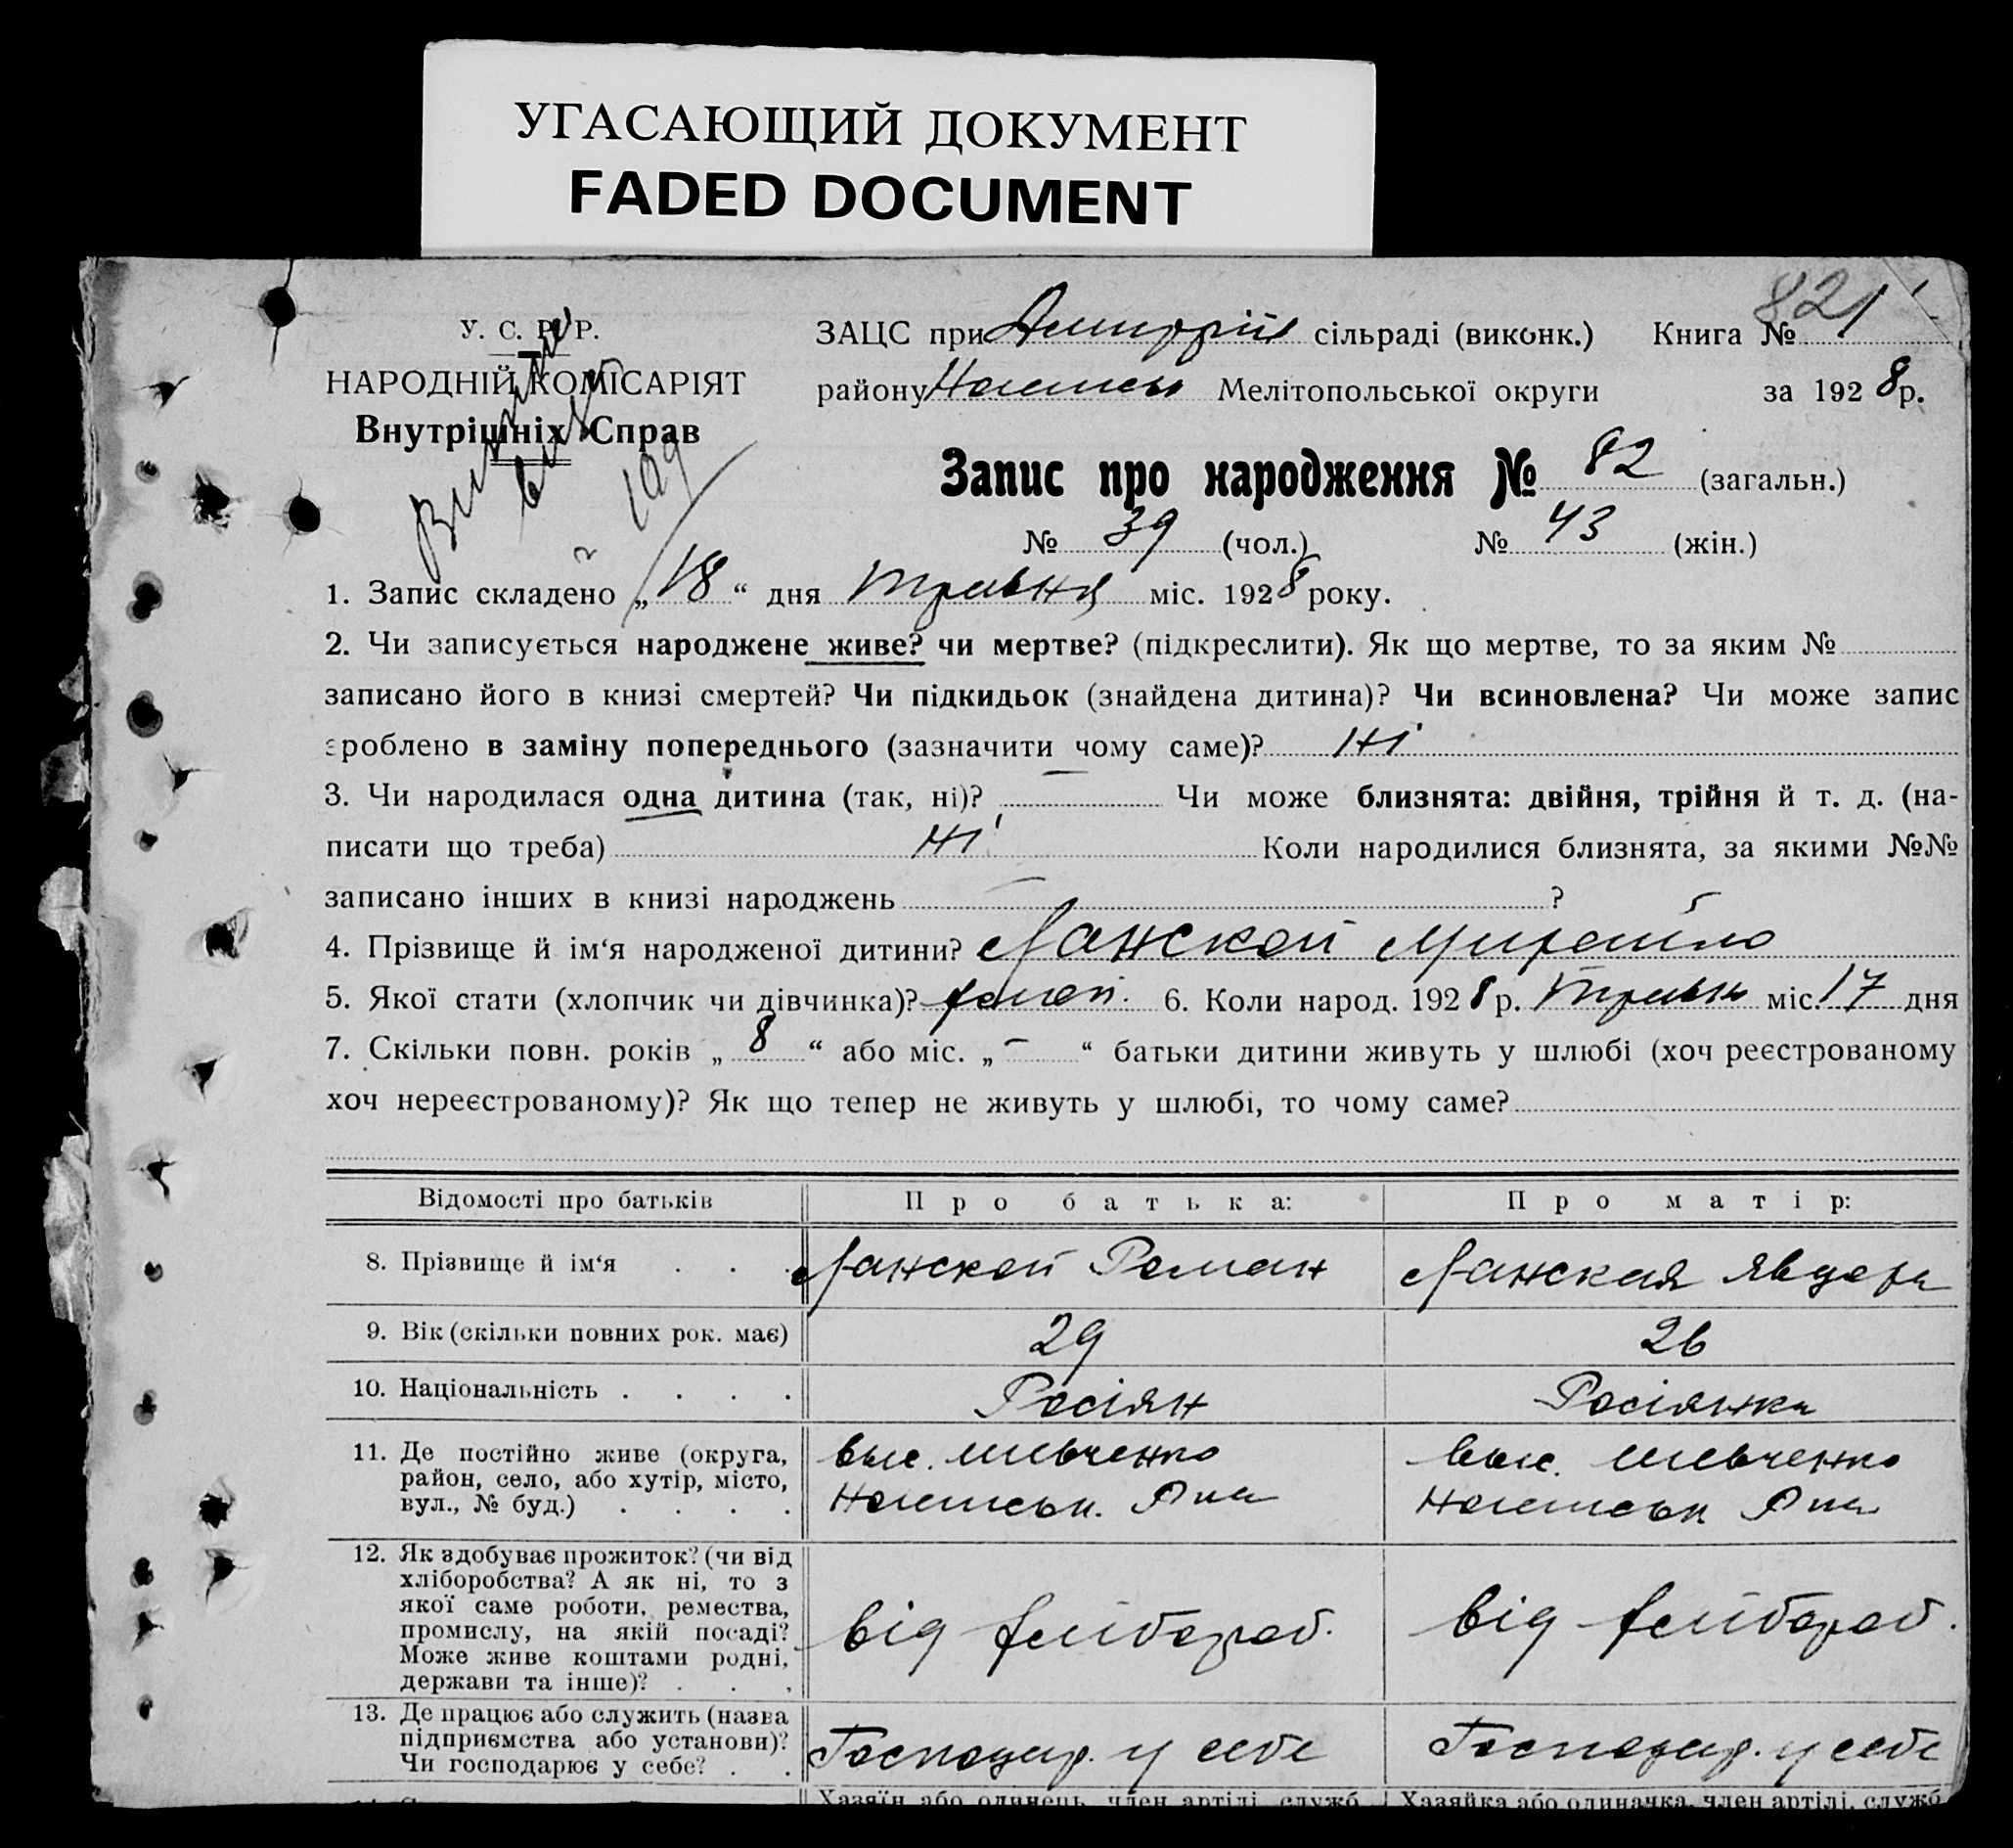 УГАСАЮЩИЙ ДОКУМЕНТ
FADED DOCUMENT
821
У. С. Р. Р.
НАРОДНІЙ КОМІСАРІЯТ
Внутрішніх Справ
ЗАЦС при сільраді (виконк.) Книга №
району Мелітопольської округи за 1928р.
Запис про народження № 82 (загальн.)
№ 39 (чол.) № 43 (жін.)
1. Запис складено „18“ дня травня міс. 1928 року.
2. Чи записується народжене живе? чи мертве? (підкреслити). Як що мертве, то за яким №
записано його в книзі смертей? Чи підкидьок (знайдена дитина)? Чи всиновлена? Чи може запис
зроблено в заміну попереднього (зазначити чому саме)? Ні
3. Чи народилася одна дитина (так, ні)? — Чи може близнята: двійня, трійня й т. д. (на-
писати що треба) Ні Коли народилися близнята, за якими №№
записано інших в книзі народжень — ?
4. Прізвище й ім‘я народженої дитини? Ланской Михайло
5. Якої стати (хлопчик чи дівчинка)? хлоп. 6. Коли народ. 1928 р. Травн міс. 17 дня
7. Скільки повн. років „8“ або міс. „-“ батьки дитини живуть у шлюбі (хоч реєстрованому
хоч нереєстрованому)? Як що тепер не живуть у шлюбі, то чому саме?
Відомості про батьків Про батька: Про матір:
8. Прізвище й ім‘я . . . Ланской Роман Ланская Явдоха
9. Вік (скільки повних рок. має) 29 26
10. Національність . . . . Росіян Росіянка
11. Де постійно живе (округа, вис. Шевченко вис. Шевченко
район, село, або хутір, місто,
вул., № буд.) . . . .
12. Як здобуває прожиток? (чи від
хліборобства? А як ні, то з
якої саме роботи, ремества,
промислу, на якій посаді? від хлібороб. від хлібороб.
Може живе коштами родні,
держави та інше)? . . .
13. Де працює або служить (назва
підприємства або установи)? Господар. у себе Господар. у себе
Чи господарює у себе? . .
Хазяїн або одинець, член артілі, служб. Хазяйка або одиначка, член артілі, служб.